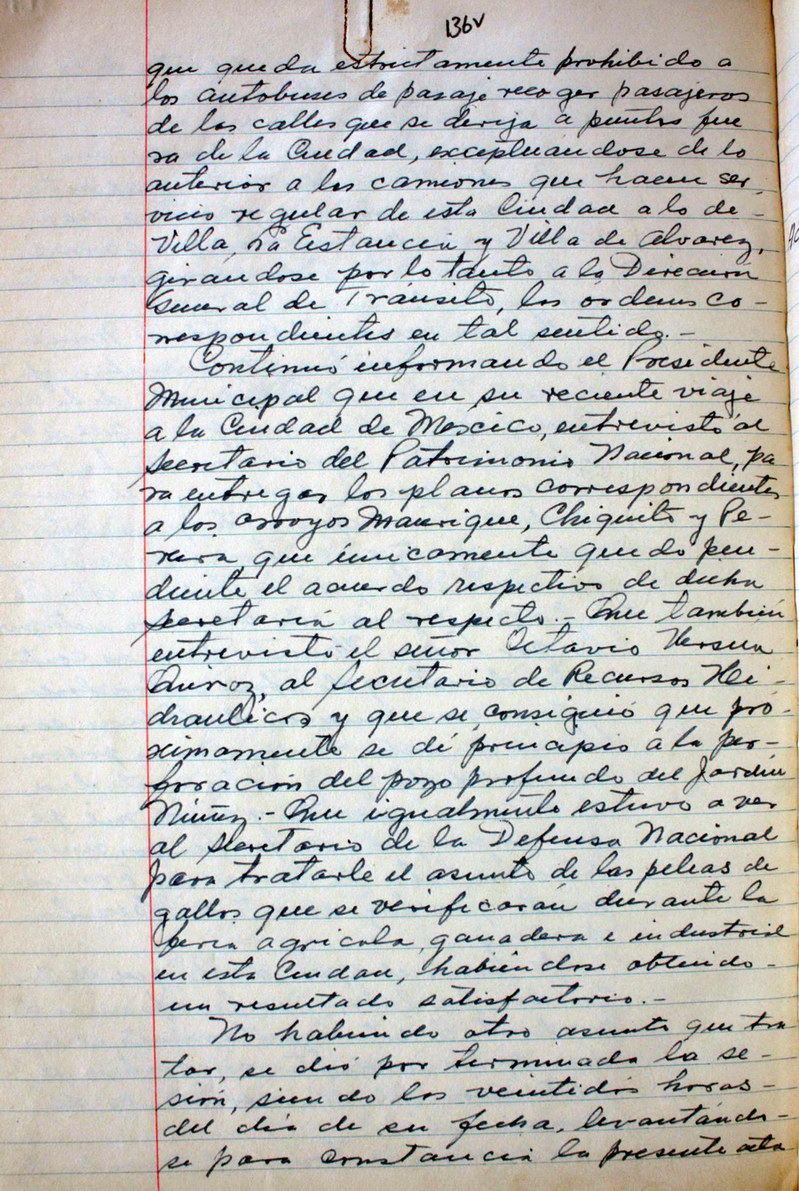 136v
que queda estrictamente prohibido a
los autobuses de pasaje recoger pasajeros
de las calles que se dirija a puntos fue
ra de la Ciudad, exceptuandose de lo
anterior a los camiones que hacen ser-
vicio regular de esta Ciudad a lo de
Villa, La Estancia y Villa de Alvarez,
girandose por lo tanto a la Dirección
General de Tránsito, las ordenes co-
rrespondientes en tal sentido.-
Continuó informando el Presidente
Municipal que en su reciente viaje
a la Ciudad de Mexcico, entrevistó al
Secretario del Patrimonio Nacional, pa
ra entregar los planos correspondientes
a los arroyos Manrique, Chiquito y Pe-
reira, que únicamente quedo pen-
diente el acuerdo respectivo de dicha
Secretaría al respecto.- Que también
entrevistó el señor Octavio
al Secretario de Recursos Hi-
draulicos y que se consiguió que pró-
ximamente se dé principio a la per-
foración del pozo profundo del Jardín
Núñez.- Que igualmente estuvo a ver
al Secretario de la Defensa Nacional
para tratarle el asunto de las peleas de
gallos que se verificarán durante la
feria agricola, ganadera e industrial
en esta Ciudad, habiendose obtenido-
un resultado satisfactorio.-
No habiendo otro asunto que tra
tar, se dió por terminada la se-
sión, siendo las veintidós horas-
del día de su fecha, levantándo-
se para constancia la presente acta